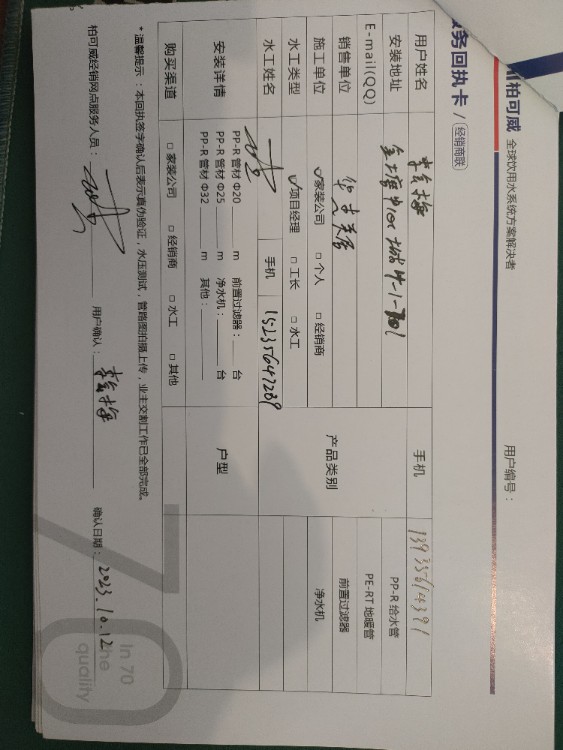 柏可威 全球饮用水系统方案解决者
务回执卡 / 经销商联
用户编号：
用户姓名 李会梅 手机 13935614391
安装地址 701
PP-R 给水管
E-mail(QQ)
PE-RT 地暖管
销售单位 华
产品类别
前置过滤器
施工单位 ✓家装公司 □ 个人 □ 经销商
净水机
水工类型 ✓项目经理 □ 工长 □ 水工
水工姓名 手机 15235647289
安装详情 PP-R 管材 Φ20 m 前置过滤器： 台
PP-R 管材 Φ25 m 净水机： 台
PP-R 管材 Φ32 m 其他：
户型
购买渠道 □ 家装公司 □ 经销商 □ 水工 □ 其他
*温馨提示：本回执签字确认后表示真伪验证，水压测试，管路图拍摄上传，业主交割工作已全部完成。
柏可威经销网点服务人员： 用户确认：李会梅 确认日期：2023.10.12
70
In 70
he
quality